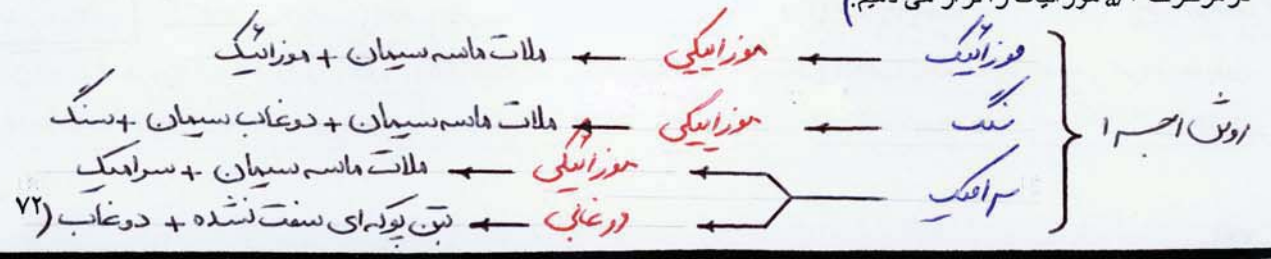 موزائیک ← موزاییکی ← ملات ماسه سیمان + موزائیک
سنگ ← موزاییکی ← ملات ماسه سیمان + دوغاب سیمان + سنگ
روش اجرا
سرامیک ← موزائیکی ← ملات ماسه سیمان + سرامیک
دوغابی ← بتن پوکه‌ای سفت نشده + دوغاب (۷۲